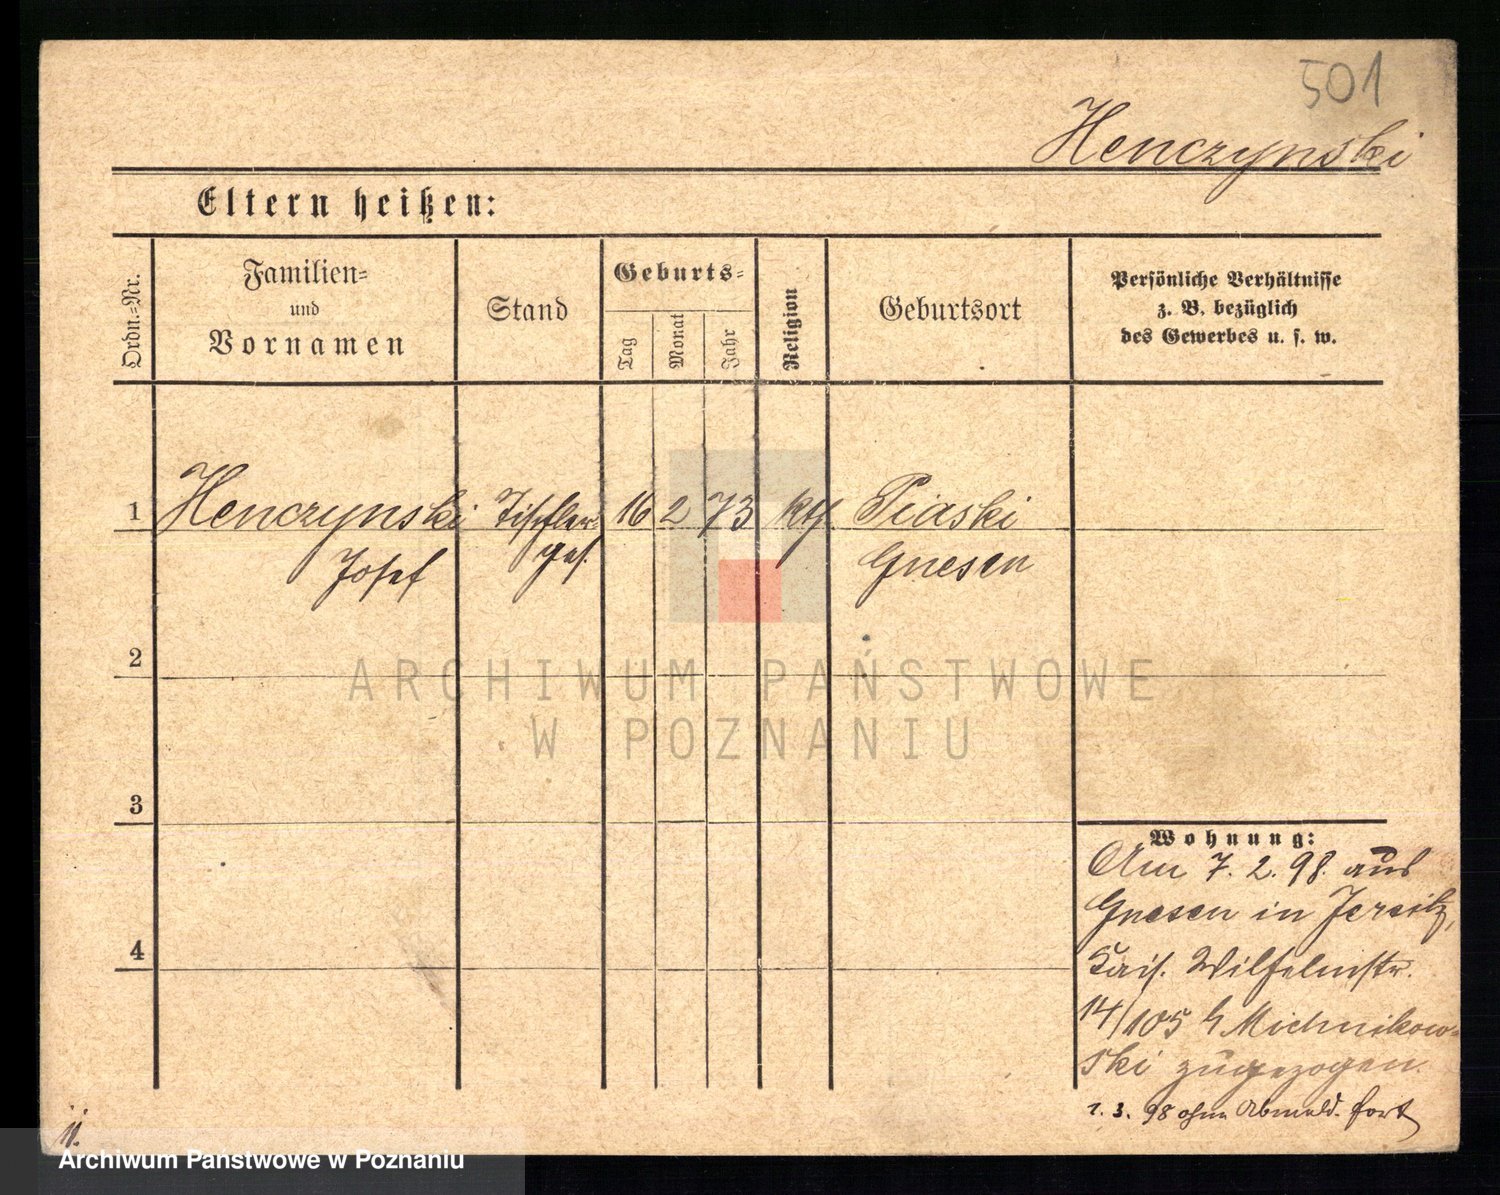 501
Henczynski
Eltern heißen:
Ordn.-Nr.
Familien-
und
Vornamen
Stand
Geburts-
Tag
Monat
Jahr
Religion
Geburtsort
Persönliche Verhältnisse
z. B. bezüglich
des Gewerbes u. s. w.
1 Henczynski Tischler 16 2 73 kth. Piaski
Josef ges. Gnesen
2
3
4
Wohnung:
Am 7. 2. 98. aus
Gnesen in Jersitz,
Kais. Wilhelmstr.
14/105 b Michnikow-
ski zugezogen.
1. 3. 98 ohne Abmeld. fort
ARCHIWUM PAŃSTWOWE
W POZNANIU
Archiwum Państwowe w Poznaniu